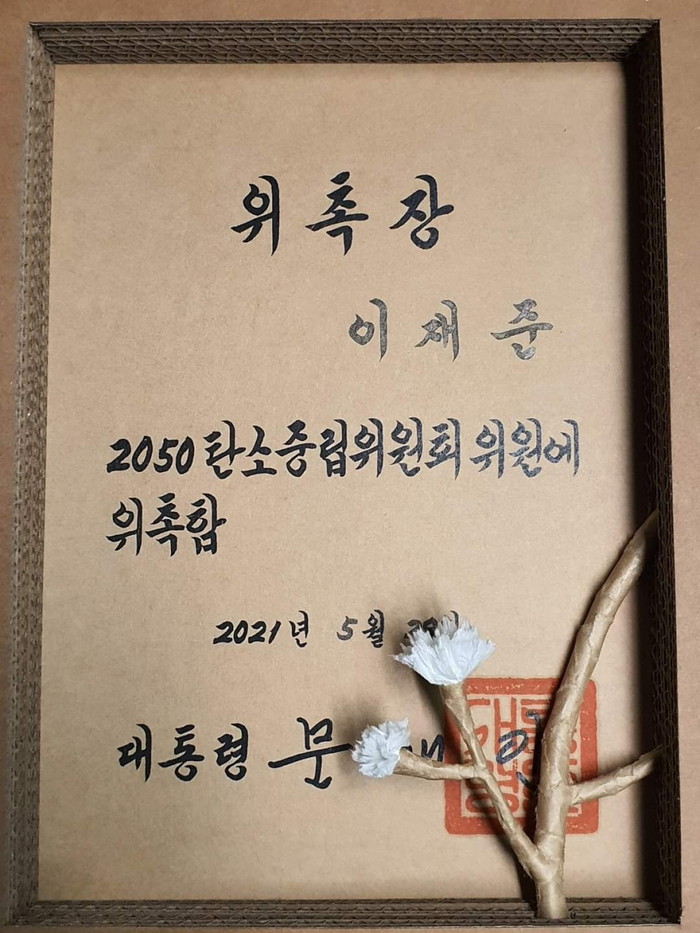 위촉장
이재준
2050 탄소중립위원회 위원에
위촉함
2021년 5월
대통령 문